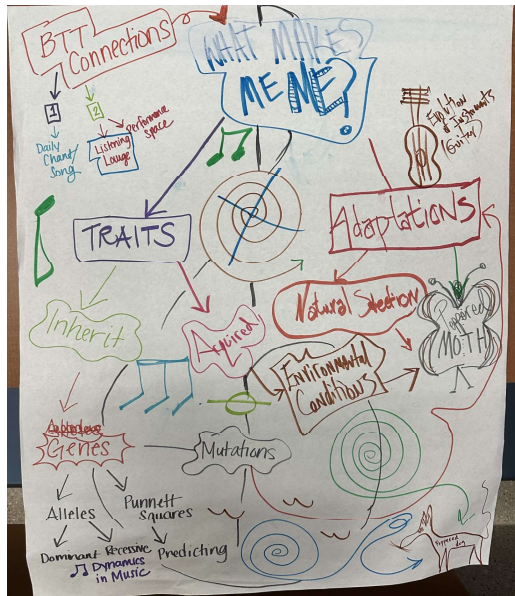 BTT
Connections
WHAT MAKES
ME ME?
1
2
Daily
Chant/
Song
Listening
Lounge
Performance
space
Evolution
of Instruments
(Guitar)
TRAITS
Adaptations
Inherit
Aquired
Natural Selection
Peppered
MOTH
Environmental
Conditions
Genes
Mutations
Alleles
Punnett
Squares
Dominant
Recessive
Predicting
Dynamics
in Music
Peppered
dog